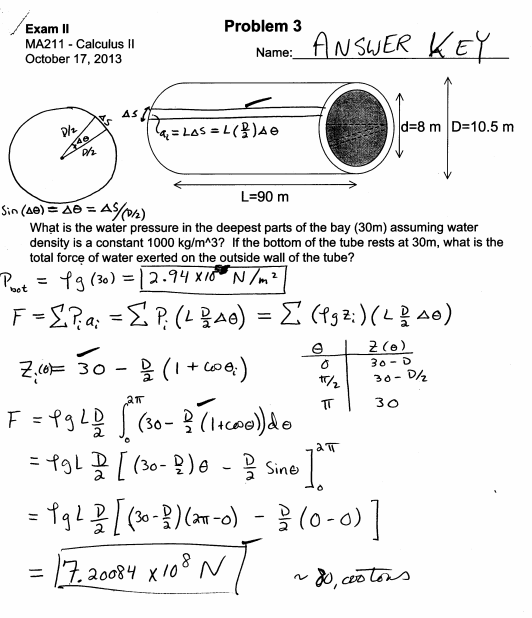 Exam II
MA211 - Calculus II
October 17, 2013
Problem 3
Name: ANSWER KEY
D/2
Δθ
D/2
ΔS
ΔS
a_i = LΔS = L(D/2)Δθ
d=8 m
D=10.5 m
L=90 m
Sin(Δθ) = Δθ = ΔS/(D/2)
What is the water pressure in the deepest parts of the bay (30m) assuming water
density is a constant 1000 kg/m^3? If the bottom of the tube rests at 30m, what is the
total force of water exerted on the outside wall of the tube?
P_bot = ρg(30) = 2.94 x10 N/m²
F = ΣP_i a_i = Σ P_i (L D/2 Δθ) = Σ (ρg z_i)(L D/2 Δθ)
Z_i(θ) = 30 - D/2 (1 + cosθ_i)
θ | Z(θ)
0 | 30-D
π/2 | 30-D/2
π | 30
F = ρg L D/2 ∫₀^2π (30 - D/2 (1+cosθ)) dθ
= ρgL D/2 [(30-D/2)θ - D/2 Sinθ]₀^2π
= ρgL D/2 [(30-D/2)(2π-0) - D/2 (0-0)]
= 7.20084 x 10⁸ N